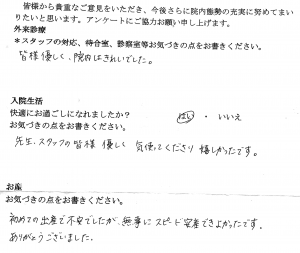 皆様から貴重なご意見をいただき、今後さらに院内態勢の充実に努めてまい
りたいと思います。アンケートにご協力お願い申し上げます。
外来診療
*スタッフの対応、待合室、診察室等お気づきの点をお書きください。
皆様優しく、院内はきれいでした。
入院生活
快適にお過ごしになれましたか? はい ・ いいえ
お気づきの点をお書きください。
先生、スタッフの皆様 優しく 気使ってくださり 嬉しかったです。
お産
お気づきの点をお書きください。
初めての出産で不安でしたが、無事にスピード安産できよかったです。
ありがとうございました。